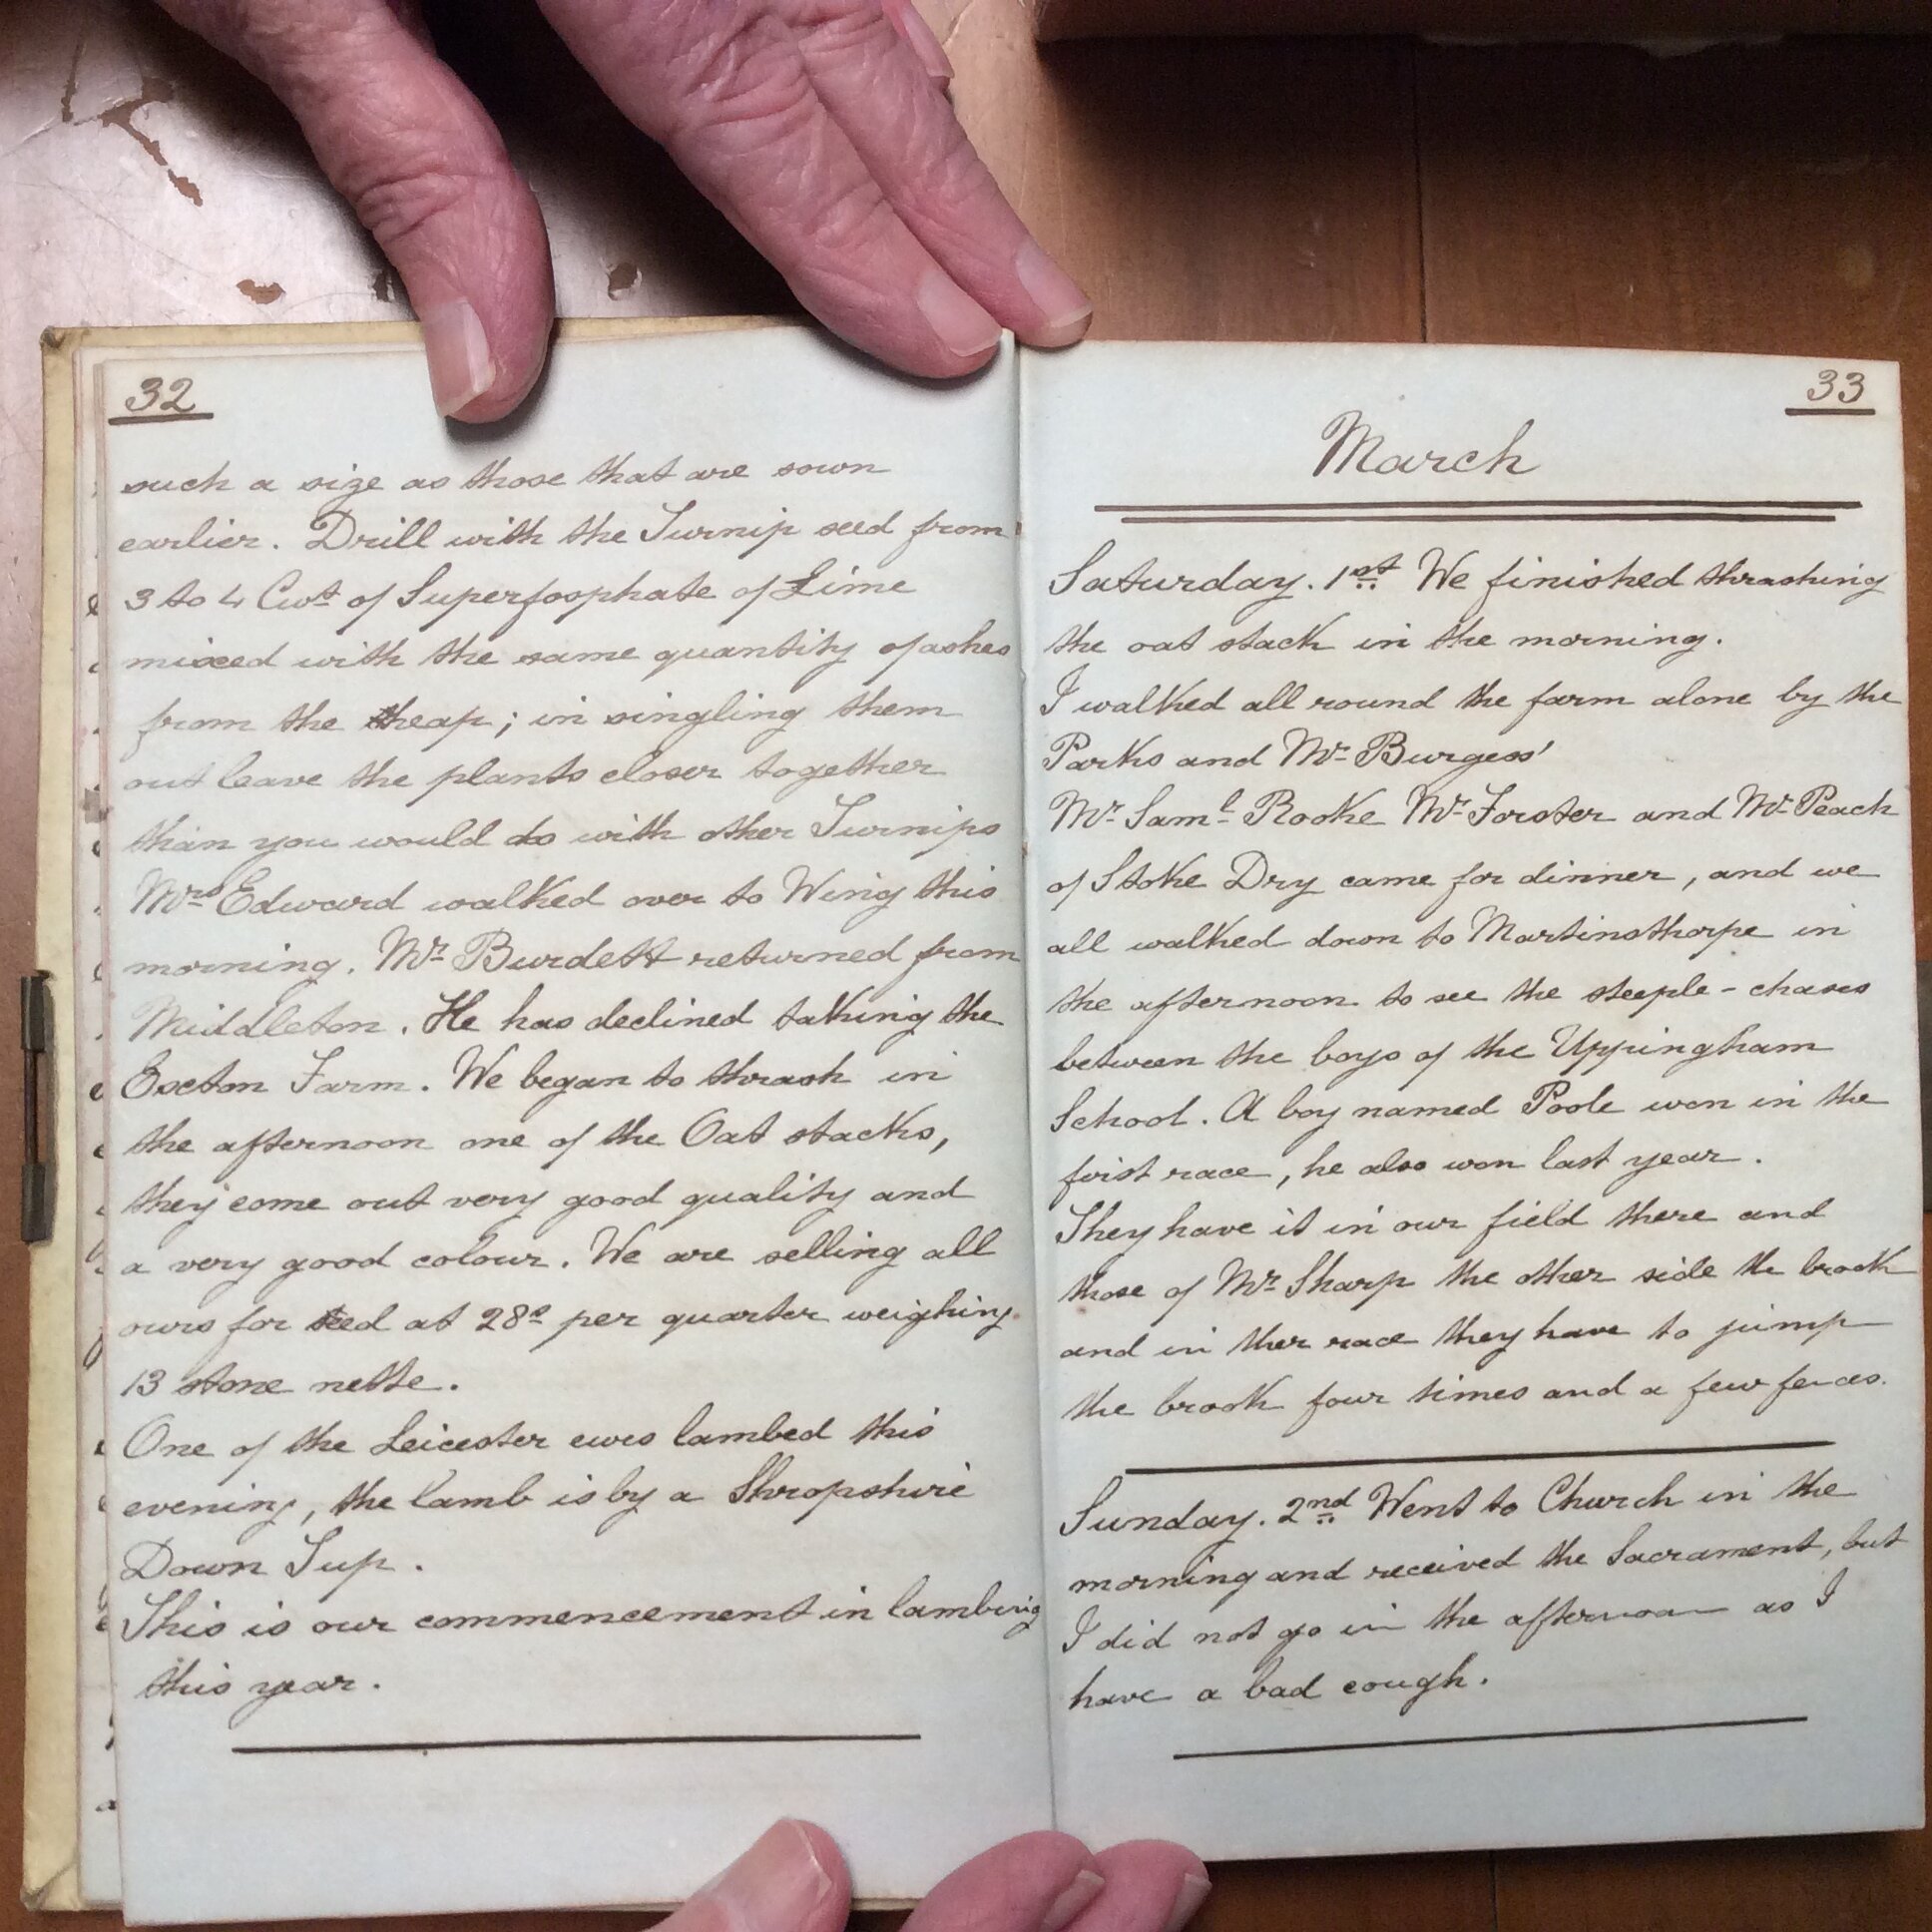 32
such a size as those that are sown
earlier. Drill with the Turnip seed from
3 to 4 Cwt of Superfosphate of Lime
mixed with the same quantity of ashes
from the heap; in singling them
out leave the plants closer together
than you would do with other Turnips
Mrs Edward walked over to Wing this
morning. Mr Burdett returned from
Middleton. He has declined taking the
Exeton Farm. We began to thrash in
the afternoon one of the Oat stacks,
they come out very good quality and
a very good colour. We are selling all
ours for seed at 28s per quarter weighing
13 stone nette.
One of the Leicester ewes lambed this
evening, the lamb is by a Shropshire
Down Tup.
This is our commencement in lambing
this year.
33
March
Saturday. 1st We finished thrashing
the oat stack in the morning.
I walked all round the farm alone by the
Parks and Mr Burgess'
Mr Saml Rooke Mr Forster and Mr Peach
of Stoke Dry came for dinner, and we
all walked down to Martinsthorpe in
the afternoon to see the steeple-chases
between the boys of the Uppingham
School. A boy named Poole won in the
first race, he also won last year.
They have it in our field there and
those of Mr Sharp the other side the brook
and in ther race they have to jump
the brook four times and a few fences.
Sunday. 2nd Went to Church in the
morning and received the Sacrament, but
I did not go in the afternoon as I
have a bad cough.